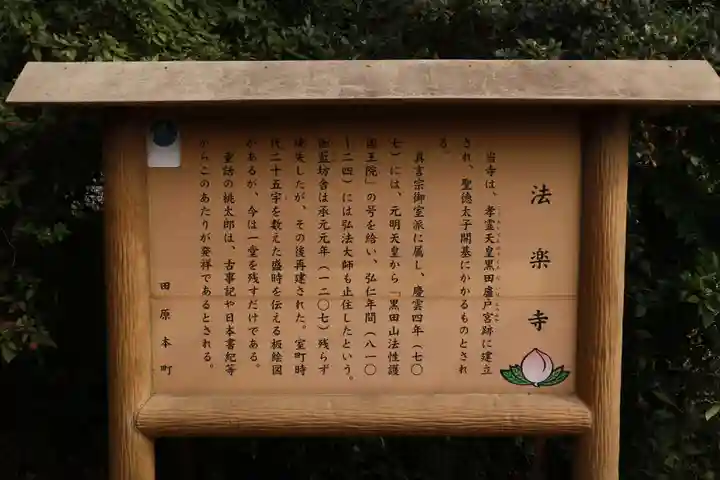 法楽寺
当寺は、孝霊天皇黒田廬戸宮跡に建立
され、聖徳太子開基にかかるものとされ
る。
真言宗御室派に属し、慶雲四年（七〇
七）には、元明天皇から「黒田山法性護
国王院」の号を給い、弘仁年間（八一〇
〜二四）には弘法大師も止住したという。
伽藍坊舎は承元元年（一二〇七）残らず
焼失したが、その後再建された。室町時
代二十五宇を数えた盛時を伝える板絵図
があるが、今は一堂を残すだけである。
童話の桃太郎は、古事記や日本書紀等
からこのあたりが発祥であるとされる。
田原本町